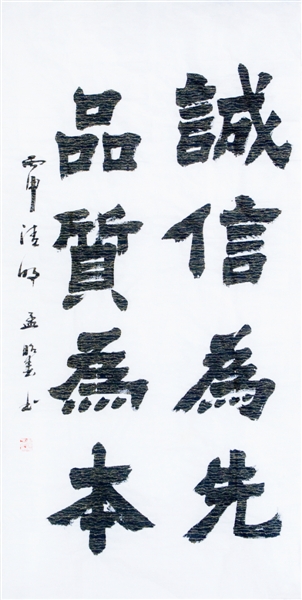 誠信為先
品質為本
丙申清明 孟昭書